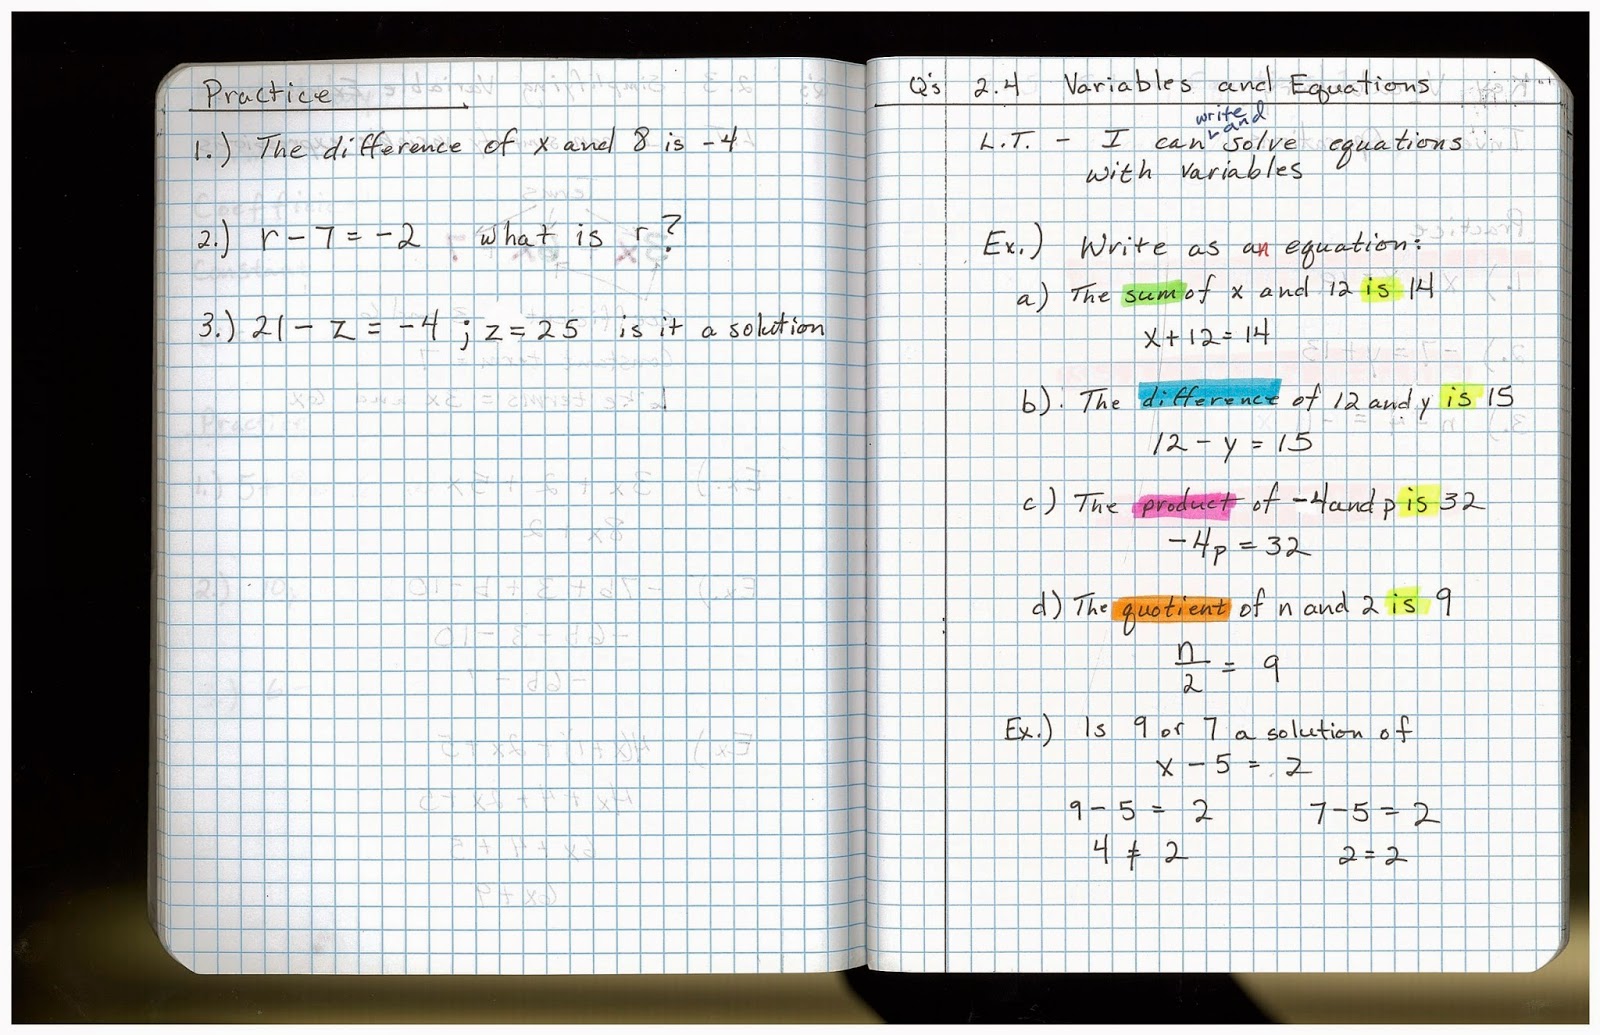 Practice
1.) The difference of x and 8 is -4
2.) r - 7 = -2 what is r?
3.) 21 - z = -4 ; z = 25 is it a solution
Q's 2.4 Variables and Equations
write and
L.T. - I can solve equations
with variables
Ex.) Write as an equation:
a) The sum of x and 12 is 14
x + 12 = 14
b) The difference of 12 and y is 15
12 - y = 15
c) The product of -4 and p is 32
-4p = 32
d) The quotient of n and 2 is 9
n/2 = 9
Ex.) Is 9 or 7 a solution of
x - 5 = 2
9 - 5 = 2 7 - 5 = 2
4 ≠ 2 2 = 2